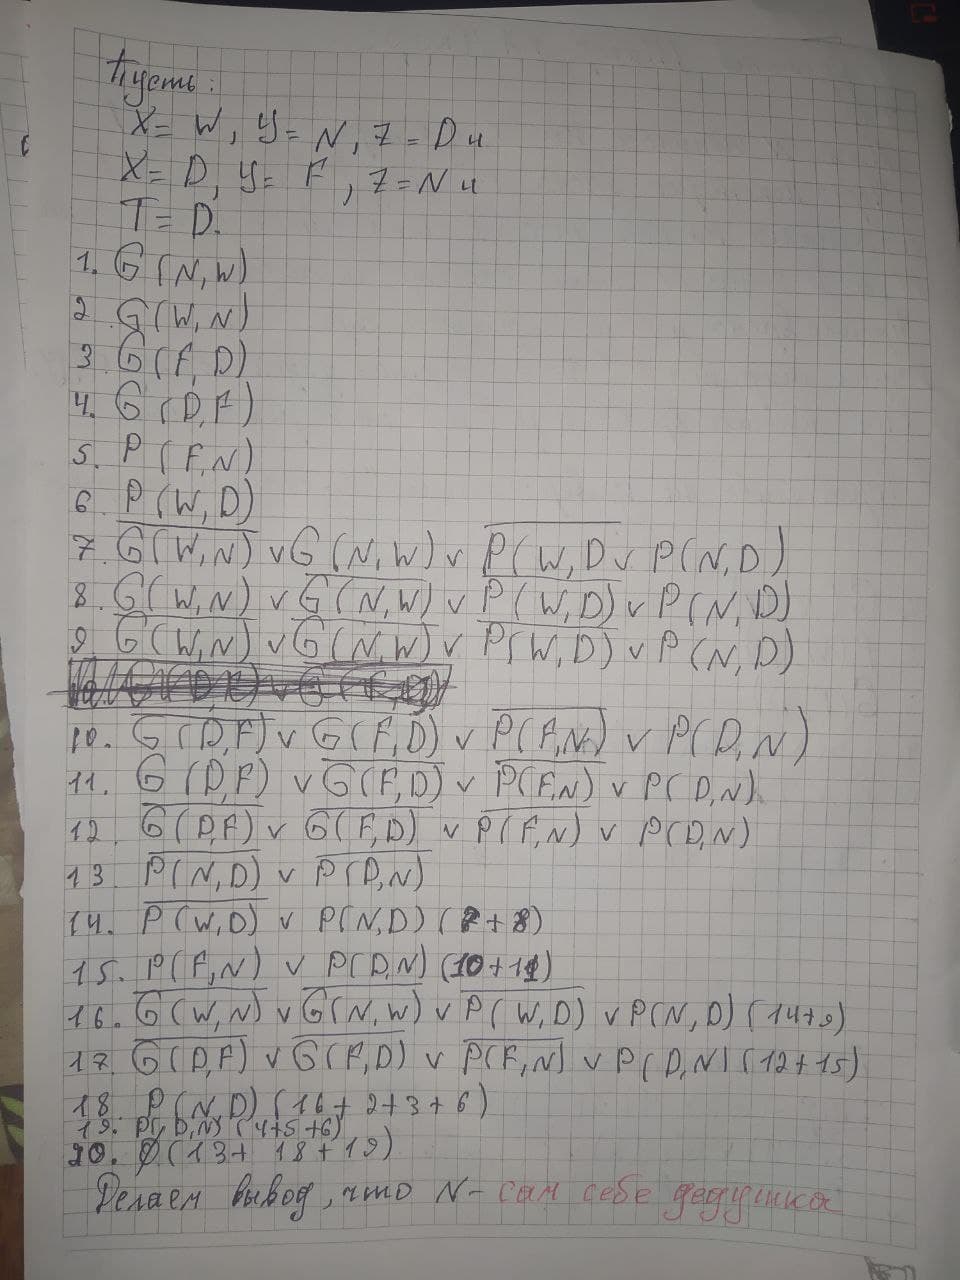 Пусть:
X = W, Y = N, Z = D и
X = D, Y = F, Z = N и
T = D.
1. G(N,W)
2. G(W,N)
3. G(F,D)
4. G(D,F)
5. P(F,N)
6. P(W,D)
7. G̅(̅W̅,̅N̅)̅ ∨ G(N,W) ∨ P̅(̅W̅,̅D̅ ∨ P(N,D)
8. G(W,N) ∨ G̅(̅N̅,̅W̅)̅ ∨ P̅(̅W̅,̅D̅)̅ ∨ P(N,D)
9. G̅(̅W̅,̅N̅)̅ ∨ G̅(̅N̅,̅W̅)̅ ∨ P̅(̅W̅,̅D̅)̅ ∨ P(N,D)
10. G̅(̅D̅,̅F̅)̅ ∨ G(F,D) ∨ P̅(̅F̅,̅N̅)̅ ∨ P(D,N)
11. G(D,F) ∨ G̅(̅F̅,̅D̅)̅ ∨ P̅(̅F̅,̅N̅)̅ ∨ P(D,N)
12. G̅(̅D̅,̅F̅)̅ ∨ G̅(̅F̅,̅D̅)̅ ∨ P̅(̅F̅,̅N̅)̅ ∨ P(D,N)
13. P̅(̅N̅,̅D̅)̅ ∨ P̅(̅D̅,̅N̅)̅
14. P̅(̅W̅,̅D̅)̅ ∨ P(N,D) (7+8)
15. P(F,N) ∨ P(D,N) (10+11)
16. G̅(̅W̅,̅N̅)̅ ∨ G̅(̅N̅,̅W̅)̅ ∨ P̅(̅W̅,̅D̅)̅ ∨ P(N,D) (14+9)
17. G̅(̅D̅,̅F̅)̅ ∨ G̅(̅F̅,̅D̅)̅ ∨ P̅(̅F̅,̅N̅)̅ ∨ P(D,N) (12+15)
18. P(N,D) (16+2+3+6)
19. P(D,N) (4+5+6)
20. Ø (13+18+19)
Делаем вывод, что N - сам себе дедушка